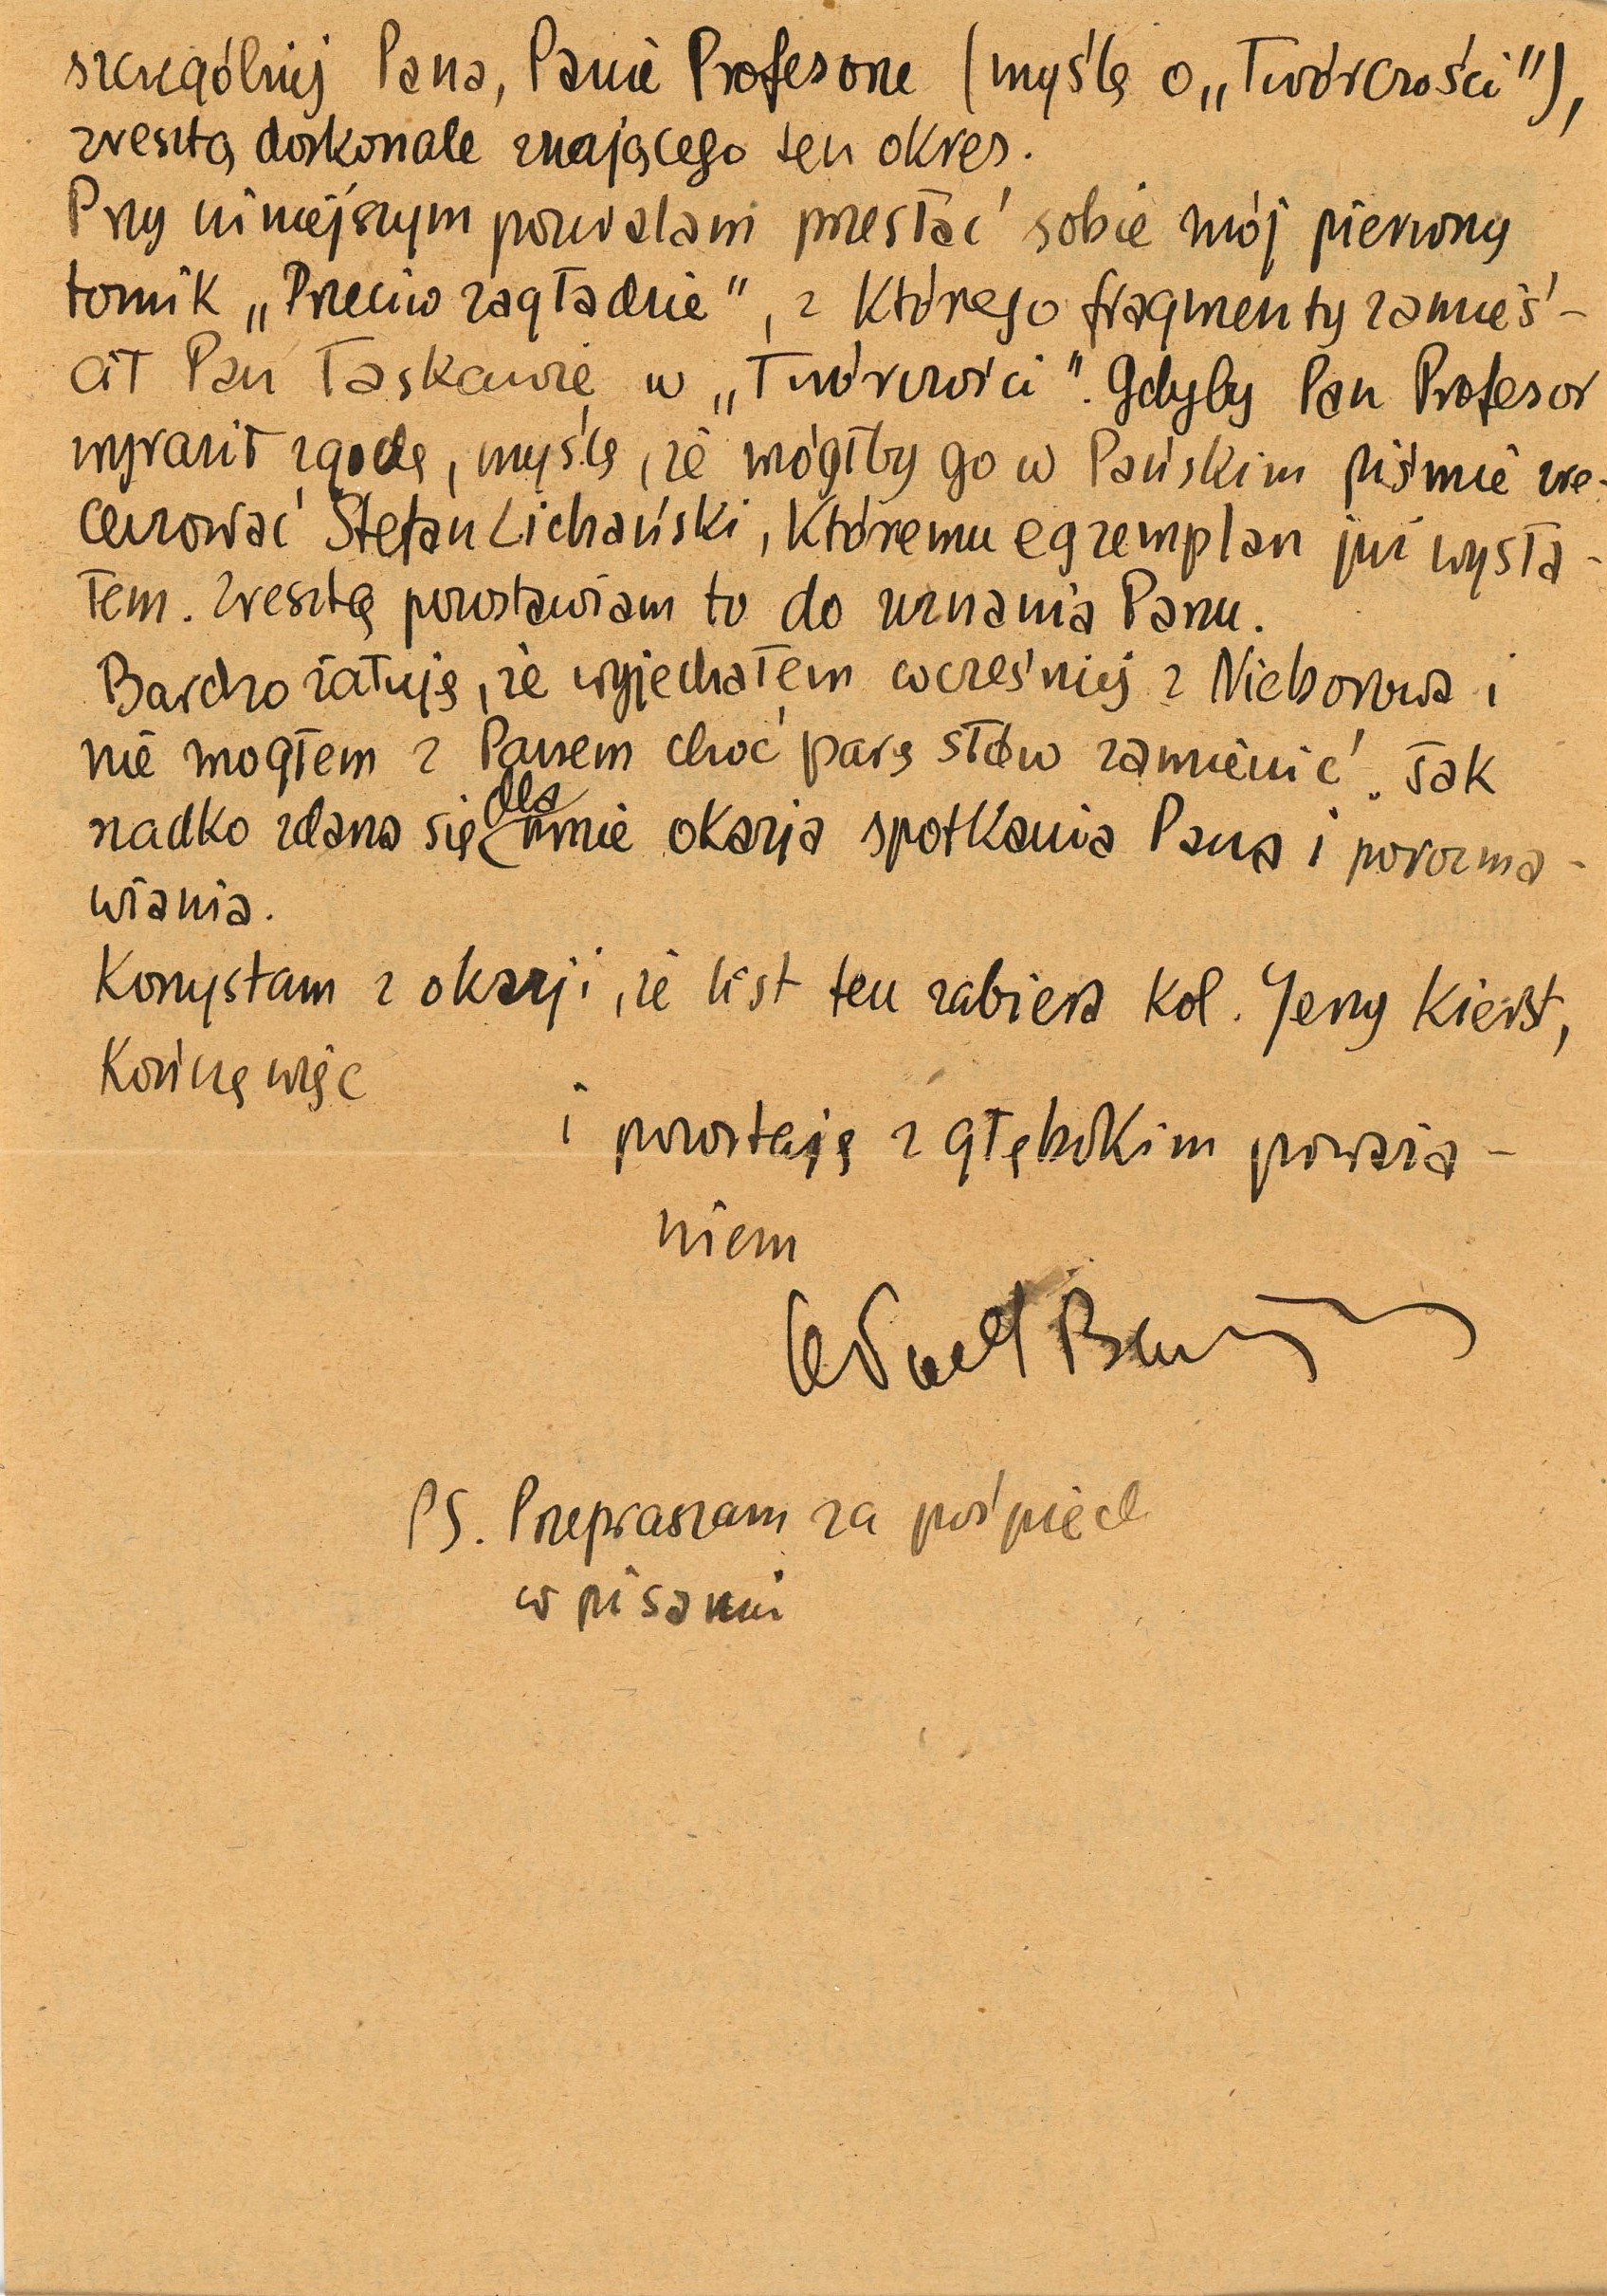 szczególniej Pana, Panie Profesorze (myślę o „Twórczości"),
zresztą doskonale znającego ten okres.
Przy niniejszym pozwalam przesłać sobie mój pierwszy
tomik „Przeciw zagładzie", z którego fragmenty zamieś-
cił Pan łaskawie w „Twórczości". Gdyby Pan Profesor
wyraził zgodę, myślę, że mógłby go w Pańskim piśmie zre-
cenzować Stefan Lichański, któremu egzemplarz już wysła-
łem. Zresztą pozostawiam to do uznania Panu.
Bardzo żałuję, że wyjechałem wcześniej z Nieborowa i
nie mogłem z Panem choć parę słów zamienić. Tak
rzadko zdarza się dla mnie okazja spotkania Pana i porozma-
wiania.
Korzystam z okazji, że list ten zabiera kol. Jerzy Kierst,
Kończę więc
i pozostaję z głębokim poważa-
niem
PS. Przepraszam za pośpiech
w pisaniu